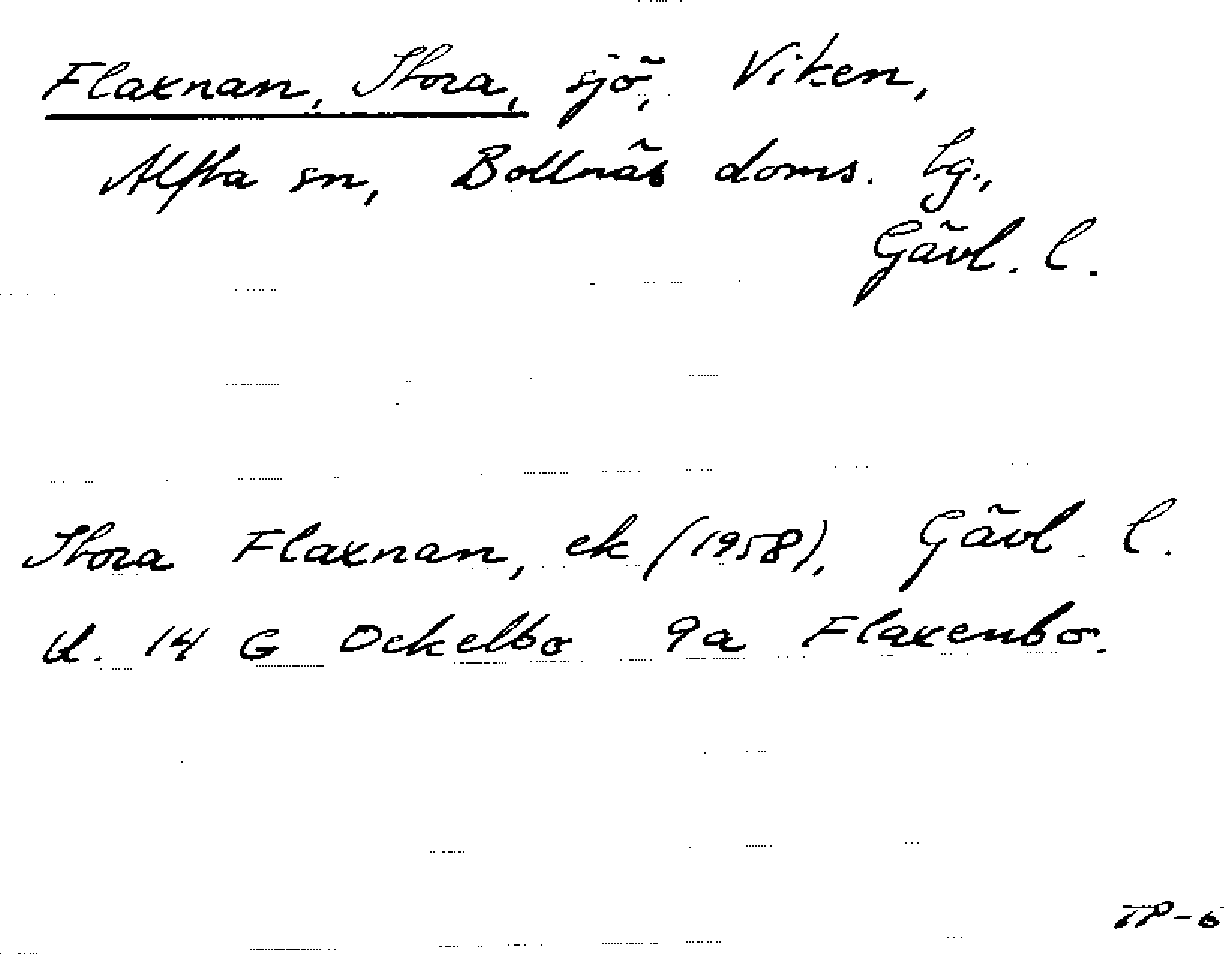 Flaxnan, Stora, sjö, Viken,
Alfta sn, Bollnäs doms. lg.,
Gävl. l.
Stora Flaxnan, ek (1958), Gävl. l.
bl. 14 G Ockelbo 9a Flaxenbo.